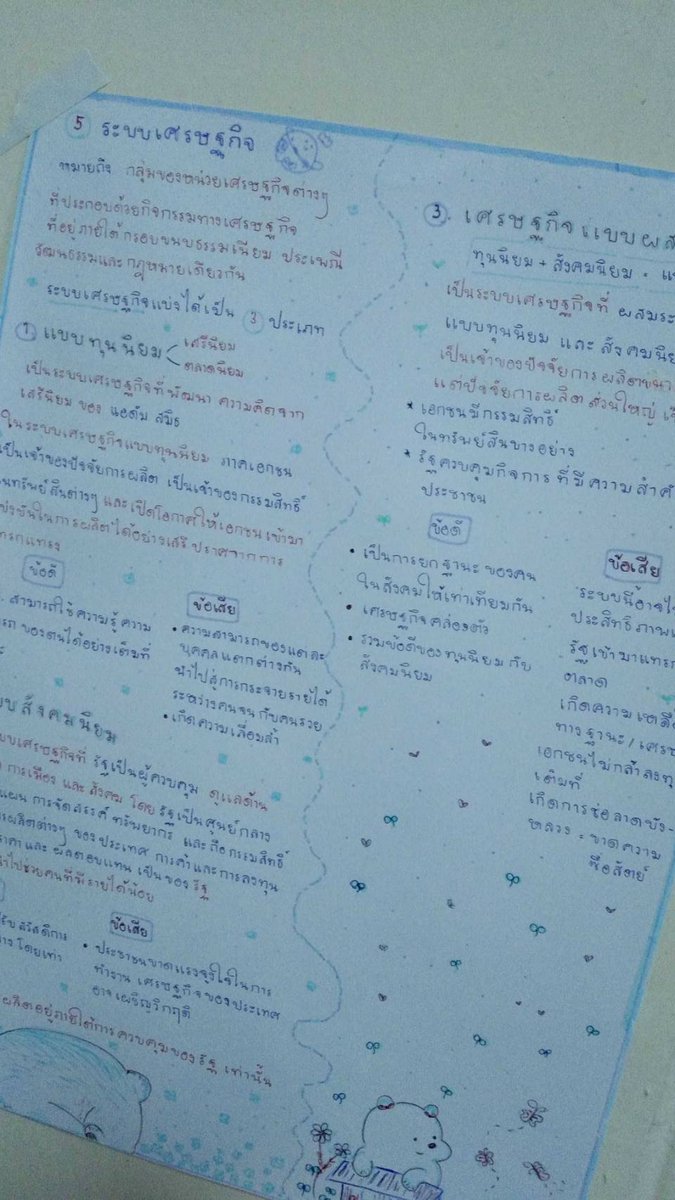 5 ระบบเศรษฐกิจ
หมายถึง กลุ่มของหน่วยเศรษฐกิจต่างๆ
ที่ประกอบด้วยกิจกรรมทางเศรษฐกิจ
ที่อยู่ภายใต้กรอบขนบธรรมเนียม ประเพณี
วัฒนธรรมและกฎหมายเดียวกัน
ระบบเศรษฐกิจแบ่งได้เป็น 3 ประเภท
1 แบบทุนนิยม
เสรีนิยม
ตลาดนิยม
เป็นระบบเศรษฐกิจที่พัฒนา ความคิดจาก
เสรีนิยม ของ แอดัม สมิธ
ในระบบเศรษฐกิจแบบทุนนิยม ภาคเอกชน
เป็นเจ้าของปัจจัยการผลิต เป็นเจ้าของกรรมสิทธิ์
ทรัพย์สินต่างๆ และเปิดโอกาสให้เอกชนเข้ามา
แข่งขันในการผลิตได้อย่างเสรี ปราศจากการ
แทรกแซง
ข้อดี
สามารถใช้ความรู้ความ
ของตนได้อย่างเต็มที่
ข้อเสีย
• ความสามารถของแต่ละ
บุคคลแตกต่างกัน
นำไปสู่การกระจายรายได้
ระหว่างคนจนกับคนรวย
• เกิดความเลื่อมล้ำ
สังคมนิยม
ระบบเศรษฐกิจที่ รัฐเป็นผู้ควบคุม ดูแลด้าน
การเมือง และ สังคม โดย รัฐเป็นศูนย์กลาง
แผน การจัดสรรค์ ทรัพยากร และถือกรรมสิทธิ์
ผลิตต่างๆ ของประเทศ การค้าและการลงทุน
ราคาและ ผลตอบแทน เป็นของรัฐ
ไปช่วยคนที่มีรายได้น้อย
สวัสดิการ
โดยเท่า
ข้อเสีย
• ประชาชนขาดแรงจูงใจในการ
ทำงาน เศรษฐกิจของประเทศ
อาจเผชิญวิกฤติ
ผลิตอยู่ภายใต้การควบคุมของรัฐ เท่านั้น
3. เศรษฐกิจแบบผส
ทุนนิยม + สังคมนิยม =
เป็นระบบเศรษฐกิจที่ ผสมระ
แบบทุนนิยม และ สังคมนิย
เป็นเจ้าของปัจจัยการผลิตขนา
แต่ปัจจัยการผลิตส่วนใหญ่
* เอกชนมีกรรมสิทธิ์
ในทรัพย์สินบางอย่าง
* รัฐควบคุมกิจการ ที่มีความสำคั
ประชาชน
ข้อดี
• เป็นการยกฐานะ ของคน
ในสังคมให้เท่าเทียมกัน
• เศรษฐกิจคล่องตัว
• รวมข้อดีของทุนนิยม กับ
สังคมนิยม
ข้อเสีย
ระบบนี้อาจไ
ประสิทธิภาพเ
รัฐเข้ามาแทรก
ตลาด
เกิดความเหลื
ทางฐานะ/เศรษ
เอกชนไม่กล้าลงทุ
เต็มที่
เกิดการช่อลาดบัง-
หลวง = ขาดความ
ซื่อสัตย์